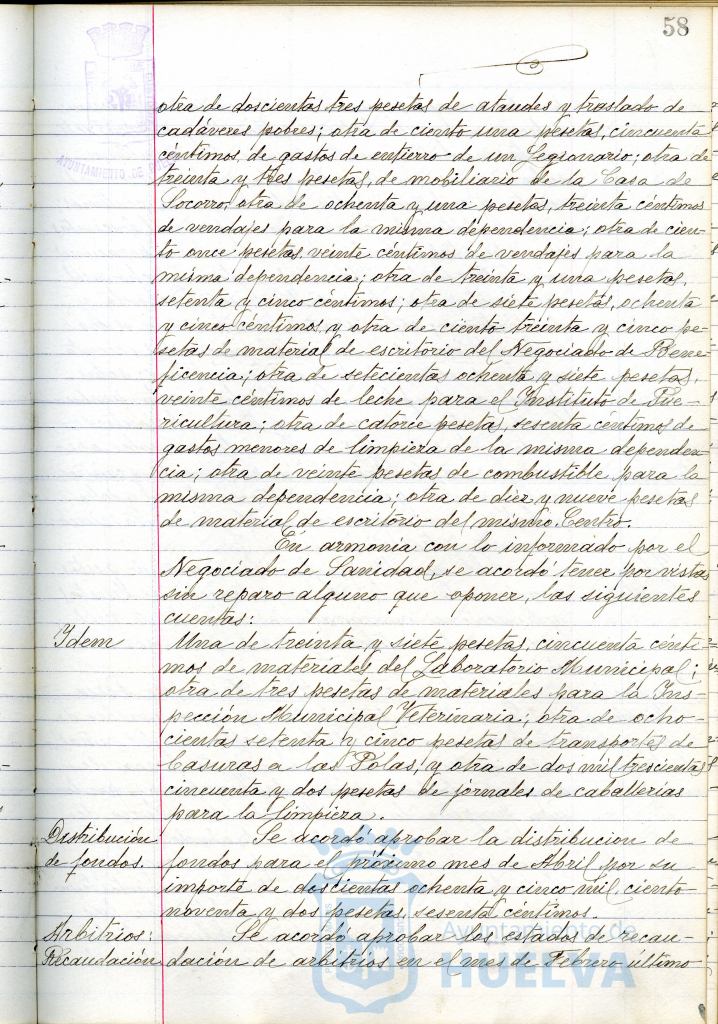 58
otra de doscientas tres pesetas de ataudes y traslado de
cadáveres pobres; otra de ciento una pesetas, cincuenta
céntimos, de gastos de entierro de un Legionario; otra de
treinta y tres pesetas, de mobiliario de la Casa de
Socorro; otra de ochenta y una pesetas, treinta céntimos
de vendajes para la misma dependencia; otra de cien-
to once pesetas, veinte céntimos de vendajes para la
misma dependencia; otra de treinta y una pesetas,
setenta y cinco céntimos; otra de siete pesetas, ochenta
y cinco céntimos, y otra de ciento treinta y cinco pe-
setas de material de escritorio del Negociado de Bene-
ficencia; otra de setecientas ochenta y siete pesetas,
veinte céntimos de leche para el Instituto de Pue-
ricultura; otra de catorce pesetas, sesenta céntimos de
gastos menores de limpieza de la misma dependen-
cia; otra de veinte pesetas de combustible para la
misma dependencia; otra de diez y nueve pesetas
de material de escritorio del mismo Centro.
En armonía con lo informado por el
Negociado de Sanidad, se acordó tener por vistas
sin reparo alguno que oponer, las siguientes
cuentas:
Idem Una de treinta y siete pesetas, cincuenta cénti-
mos de materiales del Laboratorio Municipal;
otra de tres pesetas de materiales para la Ins-
pección Municipal Veterinaria; otra de ocho-
cientas setenta y cinco pesetas de transportes de
basuras a las Polas, y otra de dos mil trescientas
cincuenta y dos pesetas de jornales de caballerias
para la limpieza.
Distribución Se acordó aprobar la distribucion de
de fondos. fondos para el próximo mes de Abril por su
importe de doscientas ochenta y cinco mil ciento
noventa y dos pesetas, sesenta céntimos.
Arbitrios: Se acordó aprobar los estados de recau-
Recaudación dación de arbitrios en el mes de Febrero último
Ayuntamiento de
HUELVA